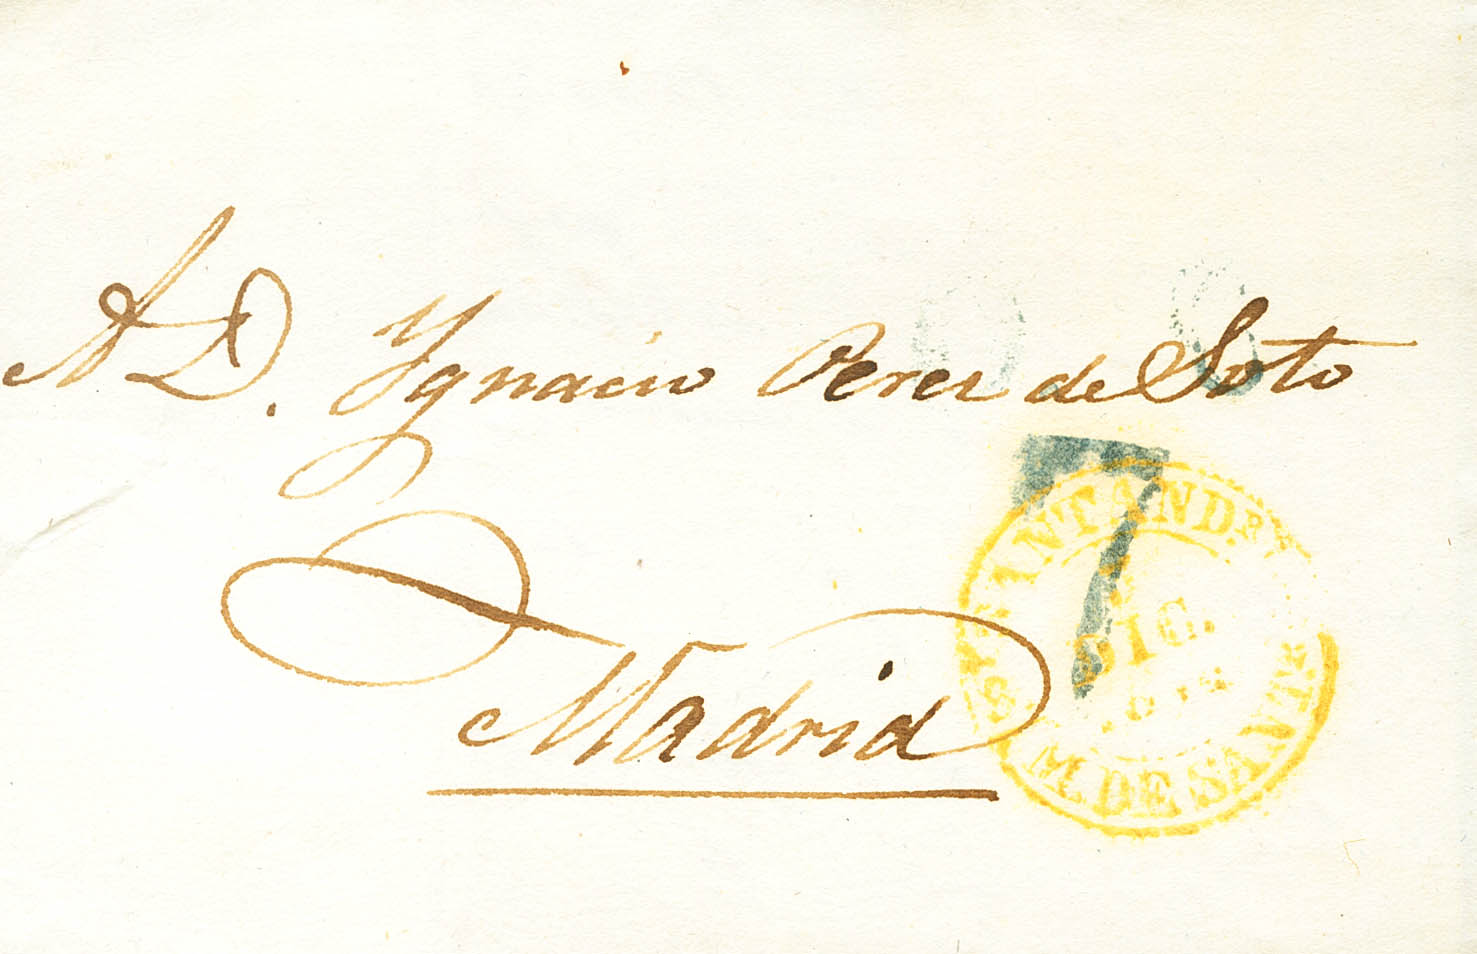 A D. Ygnacio Perez de Soto
Madrid
SANTANDER
DIC.
M. DE SANT